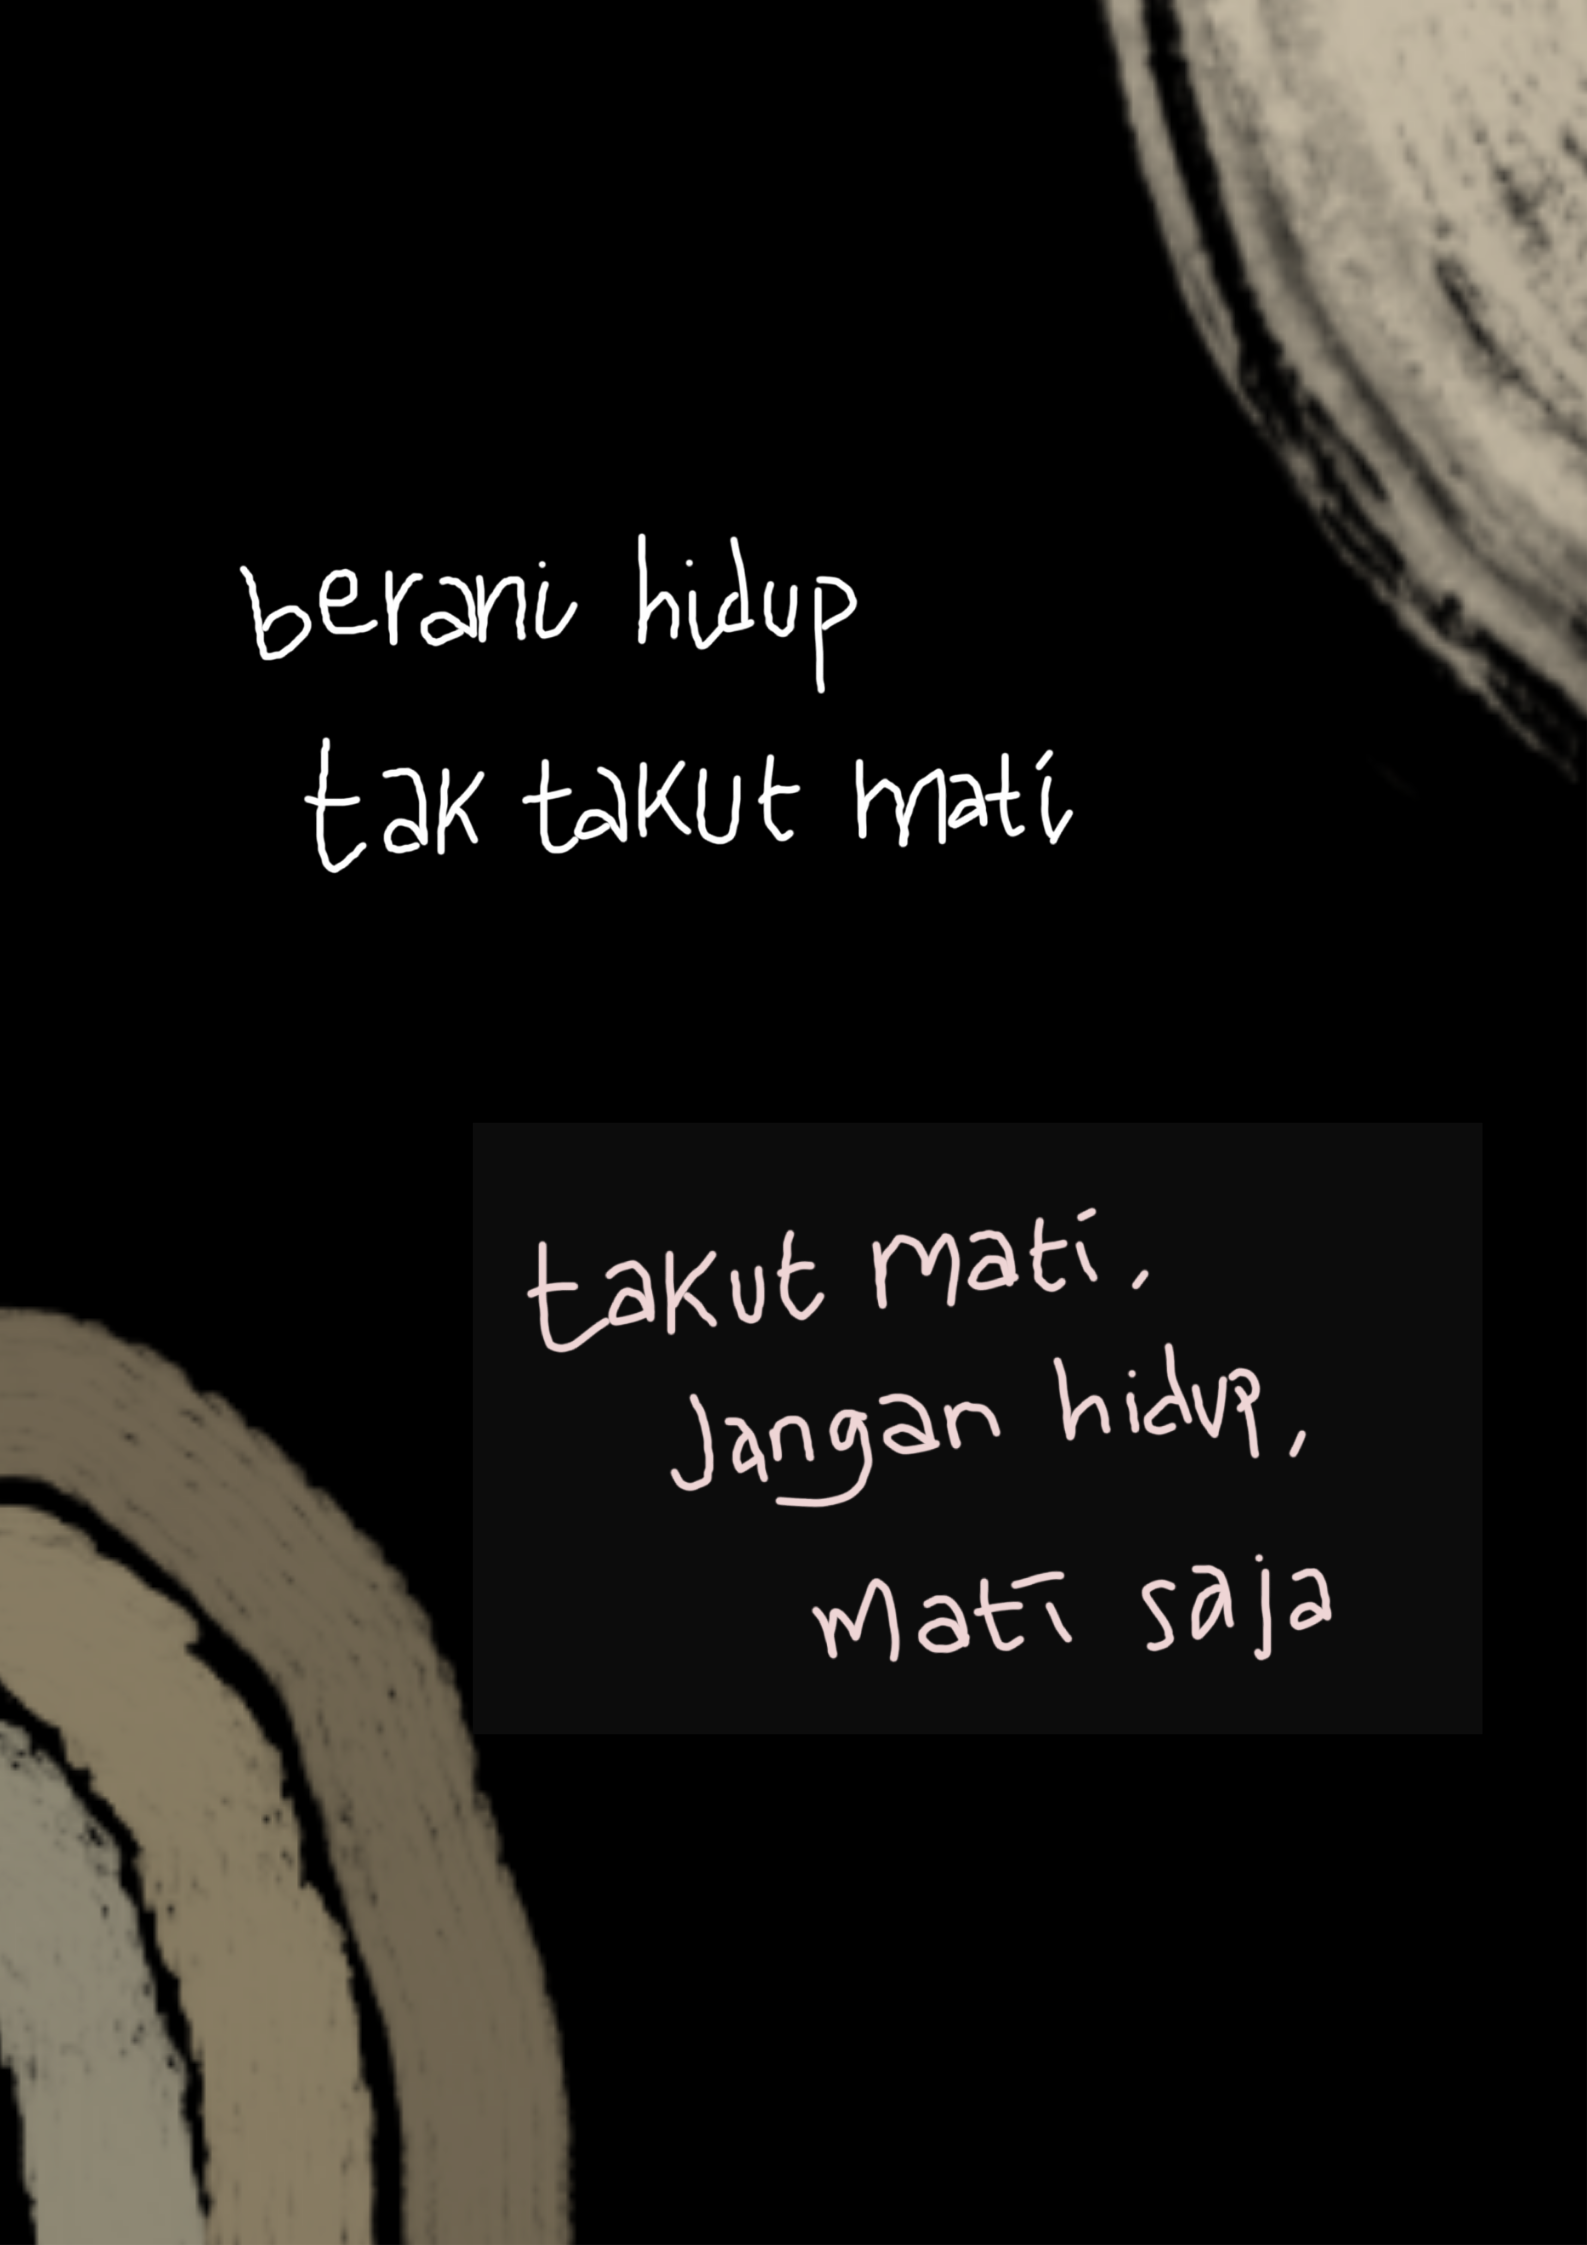 berani hidup
tak takut mati
takut mati,
Jangan hidup,
mati saja